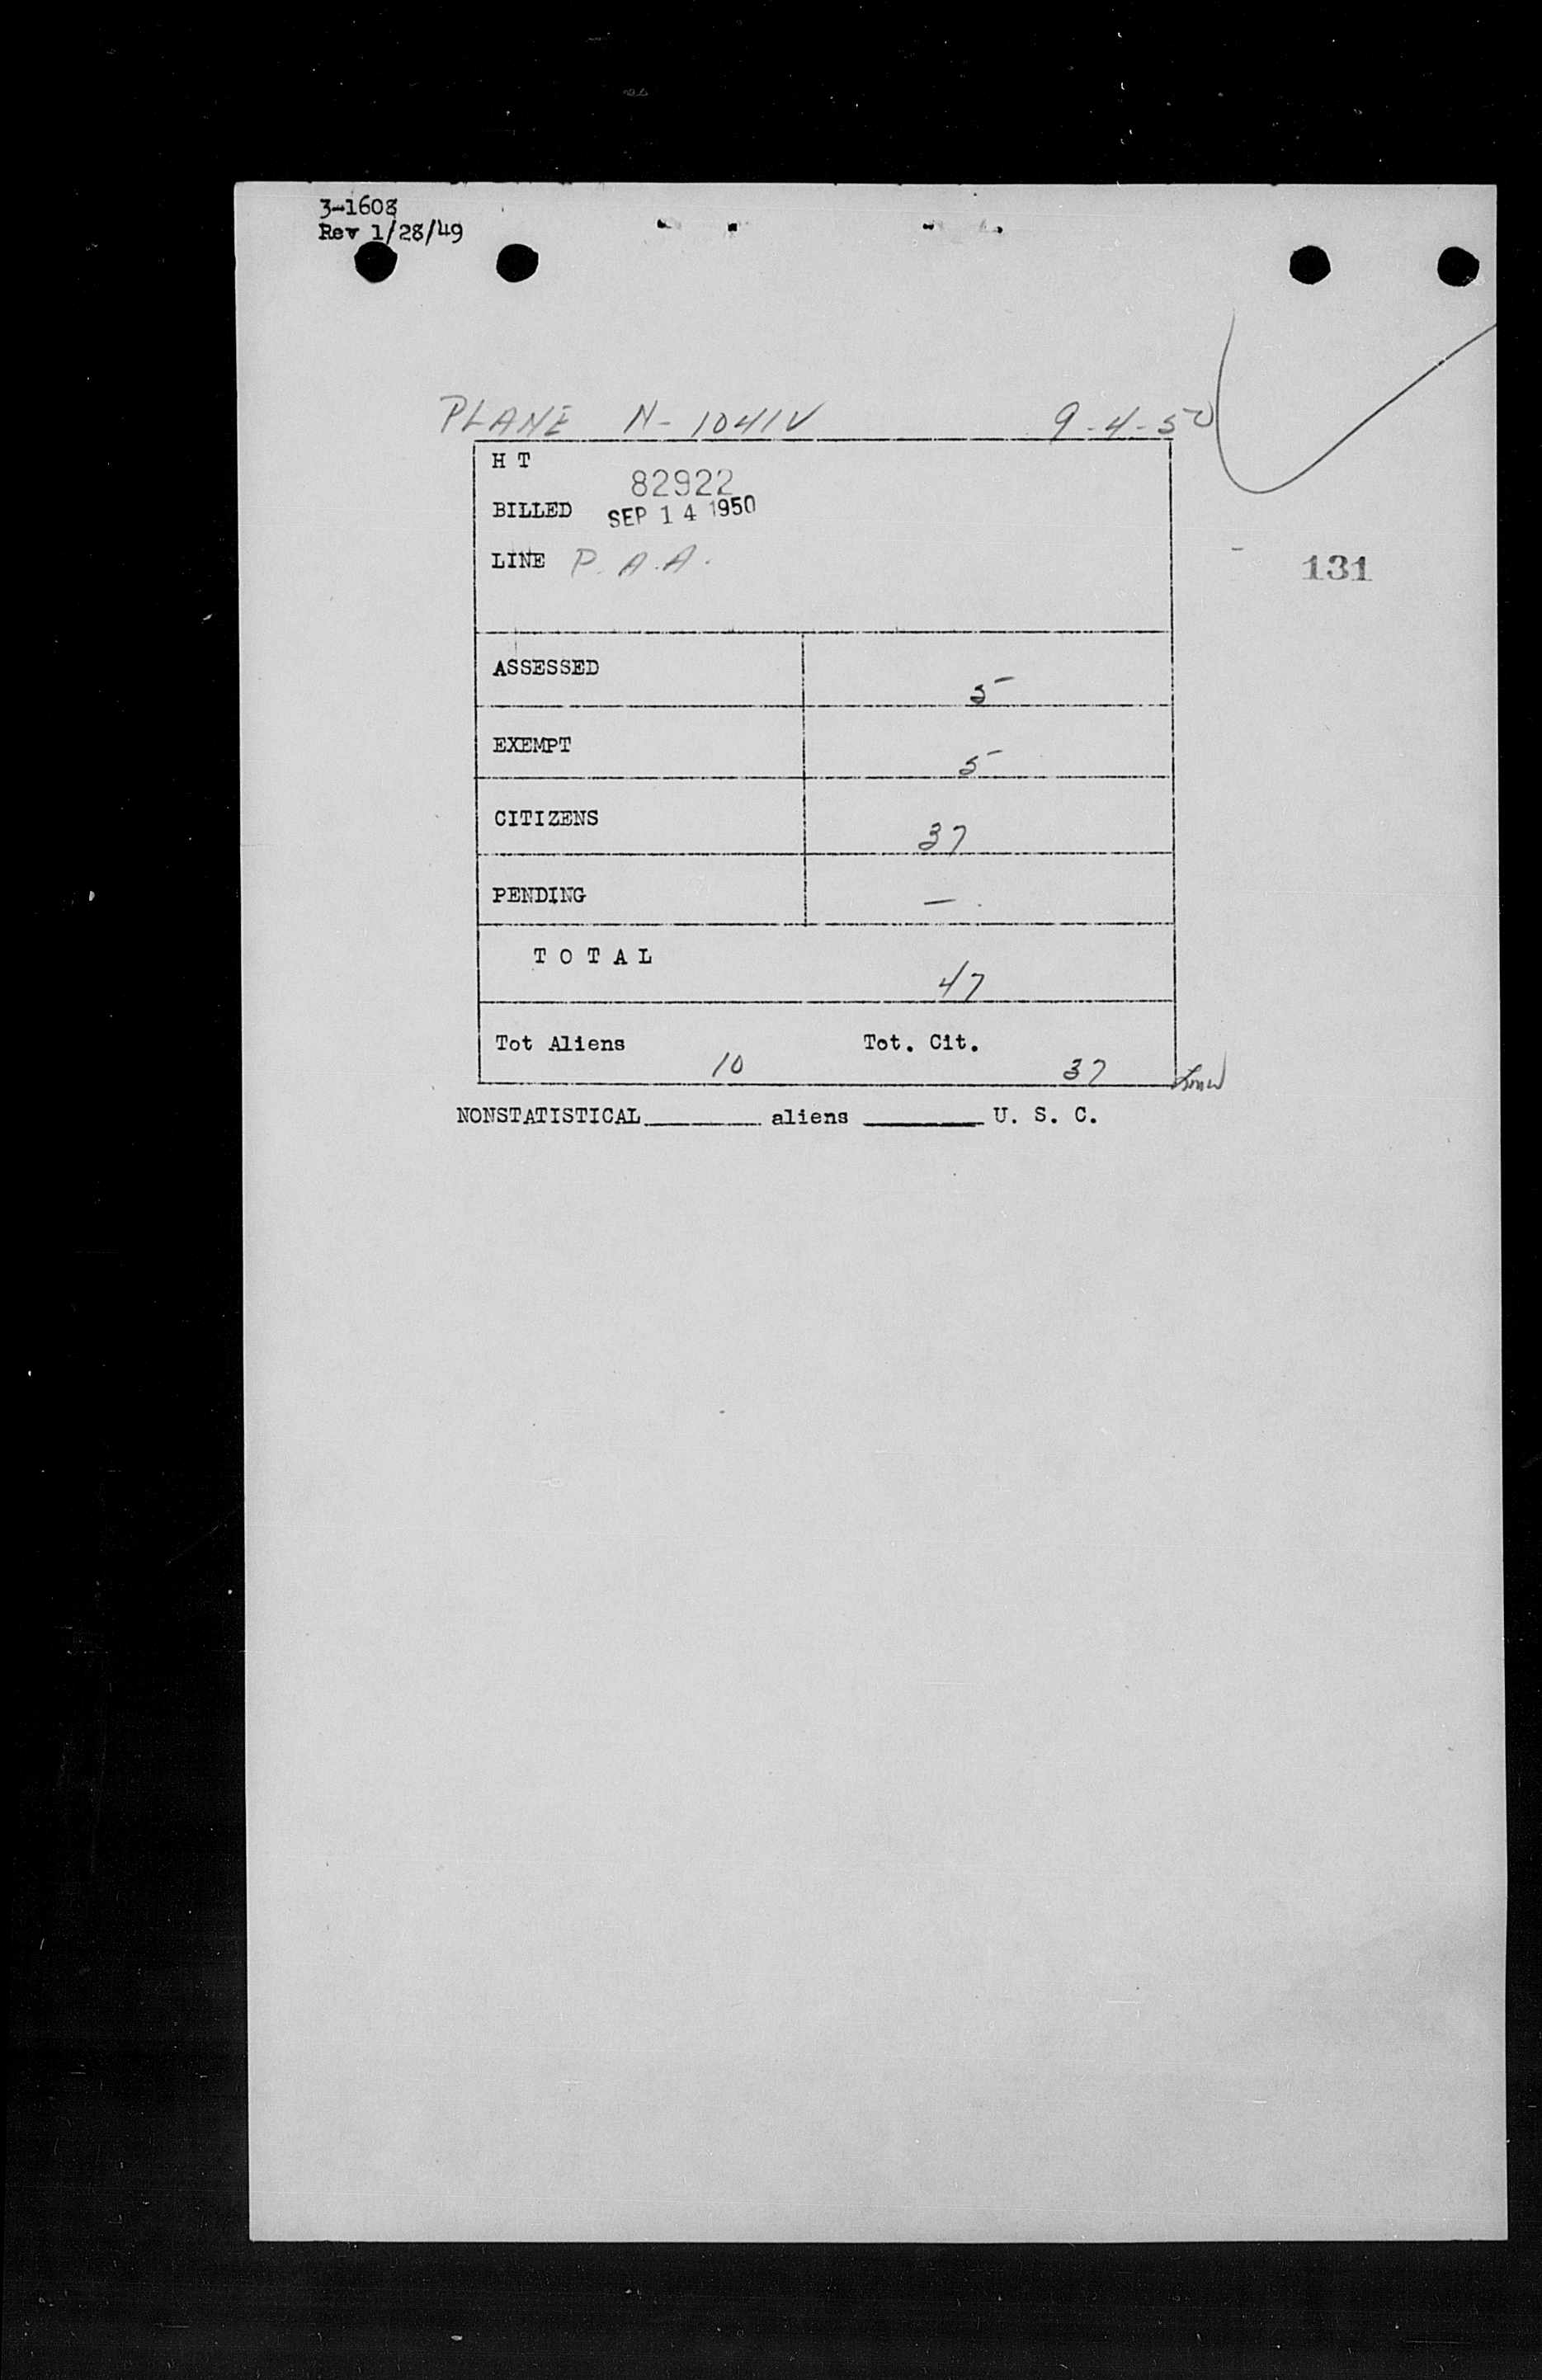 3-1608
Rev 1/28/49
PLANE N-1041V 9-4-50
H T
82922
BILLED SEP 14 1950
LINE P.A.A.
131
ASSESSED 5
EXEMPT 5
CITIZENS 37
PENDING —
TOTAL 47
Tot Aliens 10 Tot. Cit. 37
NONSTATISTICAL______ aliens ______ U. S. C.